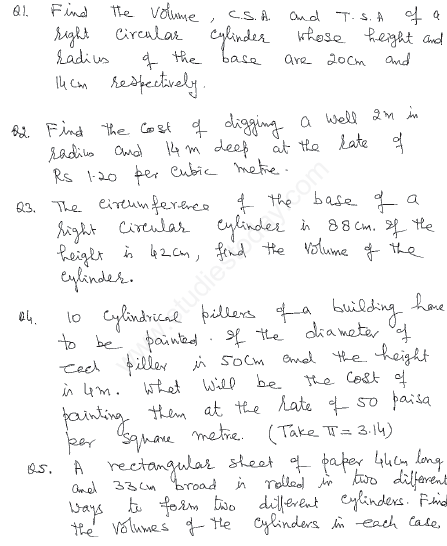 Q1. Find the Volume, C.S.A. and T.S.A of a
right Circular Cylinder whose height and
radius of the base are 20cm and
14cm respectively.
Q2. Find the Cost of digging a well 2m in
radius and 14m deep at the rate of
Rs 1.20 per Cubic metre.
Q3. The Circumference of the base of a
right Circular Cylinder is 88cm. If the
height is 42cm, find the Volume of the
Cylinder.
Q4. 10 Cylindrical pillers of a building have
to be painted. If the diameter of
each piller is 50cm and the height
is 4m. What Will be the Cost of
painting them at the rate of 50 paisa
per square metre. (Take π = 3.14)
Q5. A rectangular sheet of paper 44cm long
and 33cm broad is rolled in two different
ways to form two different Cylinders. Find
the Volumes of the Cylinders in each Case.